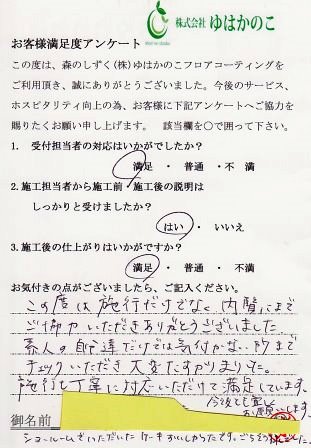 株式会社 ゆはかのこ
お客様満足度アンケート
この度は、森のしずく(株)ゆはかのこフロアコーティングを
ご利用頂き、誠にありがとうございました。今後のサービス、
ホスピタリティ向上の為、お客様に下記アンケートへご協力を
賜りたくお願い申し上げます。 該当欄を○で囲って下さい。
1. 受付担当者の対応はいかがでしたか?
満足 ・ 普通 ・ 不 満
2. 施工担当者から施工前・施工後の説明は
しっかりと受けましたか?
はい ・ いいえ
3. 施工後の仕上がりはいかがですか?
満足 ・ 普通 ・ 不 満
お気付きの点がございましたら、ご記入ください。
この度は施行だけでなく内覧にまで
ご協力いただきありがとうございました
素人の自分達だけでは気付かない所まで
チェックいただき大変たすかりました。
施行も丁寧に対応いただけて満足しています。
今後とも宜しく
お願いします。
御名前
ショールームでいただいたケーキおいしかったです。ごちそうさまでした。